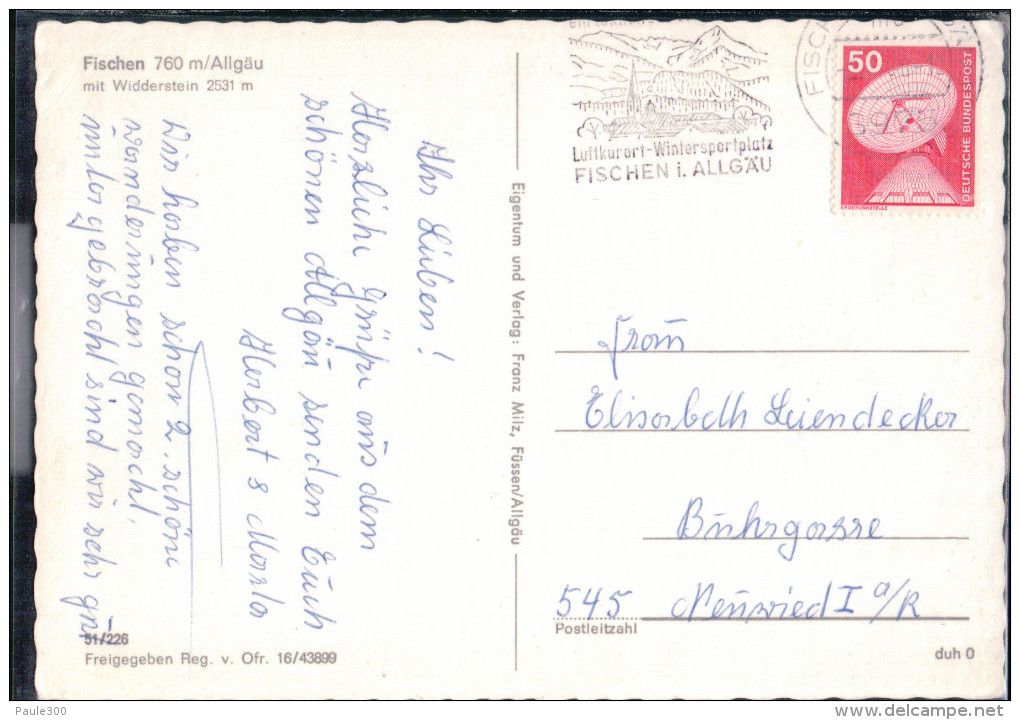 Fischen 760 m/Allgäu
mit Widderstein 2531 m
Ihr Lieben!
Herzliche Grüße aus dem
schönen Allgäu senden Euch
Herbert & Marla
Wir haben schon 2. schöne
wanderungen gemacht.
untergebracht sind wir sehr gut
51/226
Freigegeben Reg. v. Ofr. 16/43899
Eigentum und Verlag: Franz Milz, Füssen/Allgäu
Luftkurort-Wintersportplatz
FISCHEN i. ALLGÄU
FISCH
50
DEUTSCHE BUNDESPOST
ERDEFUNKSTELLE
Frau
Elisabeth Leiendecker
Buhrgasse
545 Neuwied I a/R
Postleitzahl
duh O
Paule300
www.delcampe.net